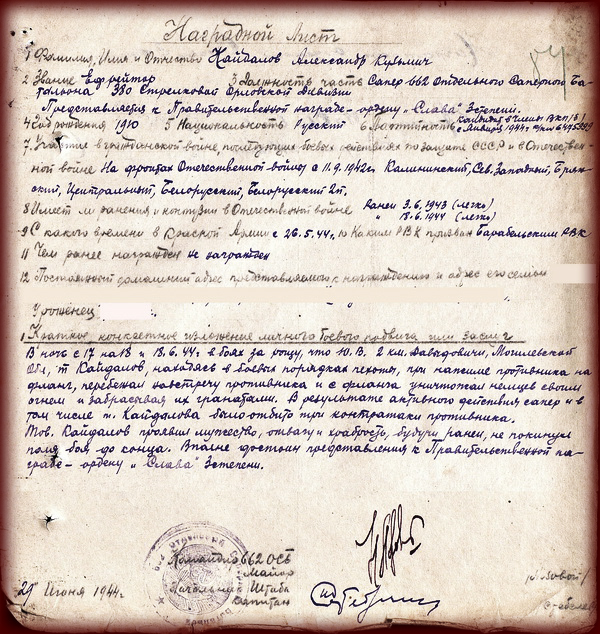 Наградной Лист
1 Фамилия, Имя и Отчество Кайдалов Александр Кузьмич
2 Звание Ефрейтор 3 Должность часть Сапер 662 Отдельного Саперного Ба-
тальона 380 Стрелковой Орловской Дивизии
Представляется к Правительственной награде - ордену „Слава" 3 степени.
4 Год рождения 1910 5 Национальность Русский 6 Партийность кандидат в члены ВКП/б/
с Января 1944г.
7. Участие в гражданской войне, последующих боевых действиях по защите СССР и в Отечествен-
ной войне На фронтах Отечественной войны с 11.9.1942г. Калининский, Сев. Западный, Брян-
ский, Центральный, Белорусский, Белорусский 2й.
8 Имеет ли ранения и контузии в Отечественной войне Ранен 3.6.1943 (легко)
" 18.6.1944 (легко)
9 С какого времени в Красной Армии с 26.5.44г. 10 Каким РВК призван Барабельским РВК
11 Чем ранее награжден не награжден
12 Постоянный домашний адрес представляемого к награждению и адрес его семьи
Уроженец
1 Краткое конкретное изложение личного боевого подвига или заслуг
В ночь с 17 на 18 и 18.6.44г. в боях за рощу, что Ю.В. 2 км. Давыдовичи, Могилевской
Обл., т Кайдалов, находясь в боевых порядках пехоты, при натиске противника на
фланг, перебежал навстречу противника и с фланга уничтожал немцев своим
огнем и забрасывая их гранатами. В результате активного действия сапер и в
том числе т. Кайдалова было отбито три контратаки противника.
Тов. Кайдалов проявил мужество, отвагу и храбрость, будучи ранен, не покинул
поля боя до конца. Вполне достоин представления к Правительственной на-
граде - ордену „Слава" 3 степени.
Командир 662 ОСБ
Майор
Начальник Штаба
Капитан
29 Июня 1944г.